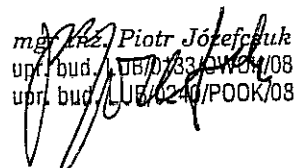 mgr inż. Piotr Józefczuk
upr. bud. LUB/0133/OWOK/08
upr. bud. LUB/0240/POOK/08